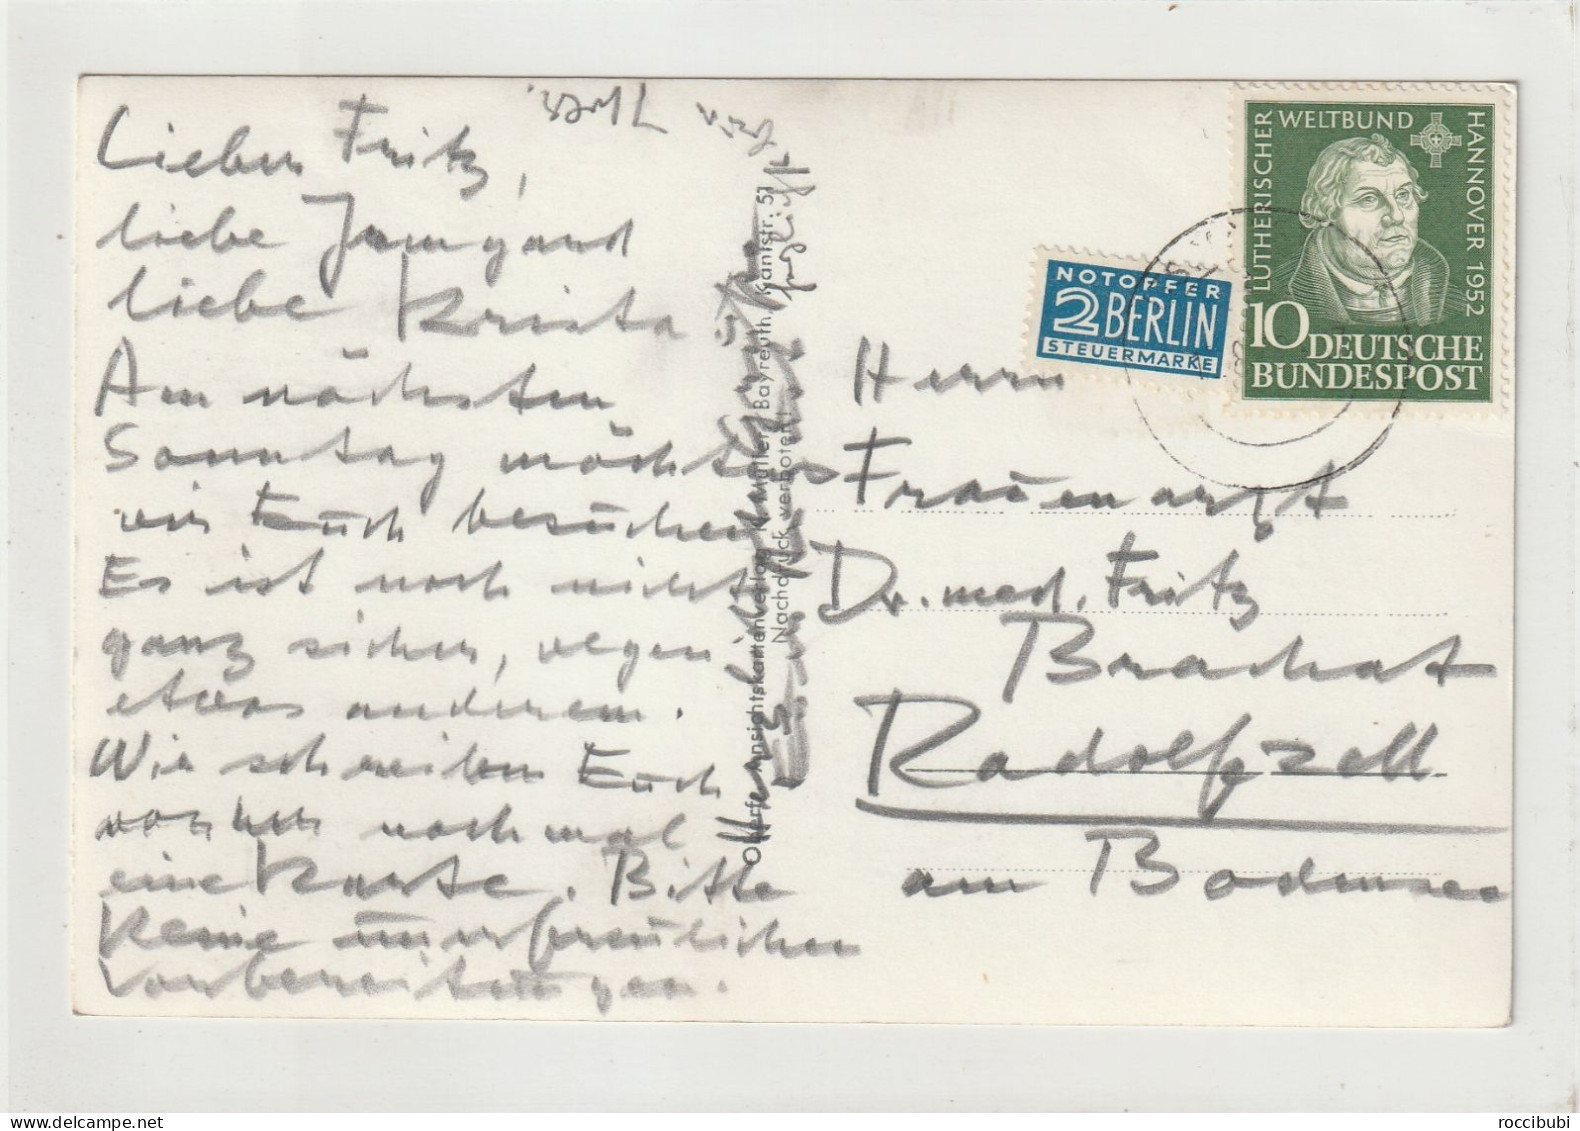 Lieber Fritz,
liebe Irmgard
liebe Krista
Am nächsten
Sonntag möchten
wir Euch besuchen
Es ist noch nicht
ganz sicher, wegen
etwas anderem.
Wir schreiben Euch
vorher nochmal
eine Karte. Bitte
keine unerfreulichen
Vorbereitungen.
Herzlich
grüßt
Ansichtskartenverlag Müller, Bayreuth, Kantstr. 51
Nachdruck verboten!
LUTHERISCHER WELTBUND HANNOVER 1952
10 DEUTSCHE
BUNDESPOST
NOTOPFER
2 BERLIN
STEUERMARKE
Herrn
Frauenarzt
Dr. med. Fritz
Brachat
Radolfzell
am Bodensee
roccibubi